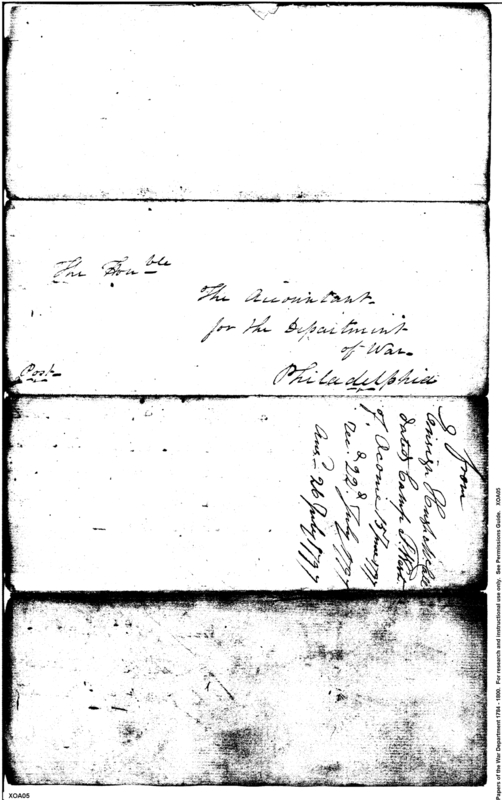 The Hon^ble
The Accountant
for the Department
of War
Philadelphia
Post
from
Ensign
dated Camp
of Oconee 15 June 1797
Rec.d 22d July 1797
Ans.d 26 July 1797
XOA05
Papers of the War Department 1784 - 1800. For research and instructional use only. See Permissions Guide. XOA05